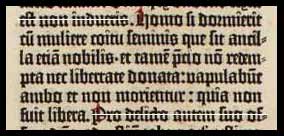 est non indueris. Homo si dormierit
cũ muliere coitu seminis que sit ancil-
la etiã nobilis · et tamẽ p̃cio nõ redem-
pta nec libertate donata: vapulabũt
ambo et non morientur: quia non
fuit libera. Pro delicto autem suo of-